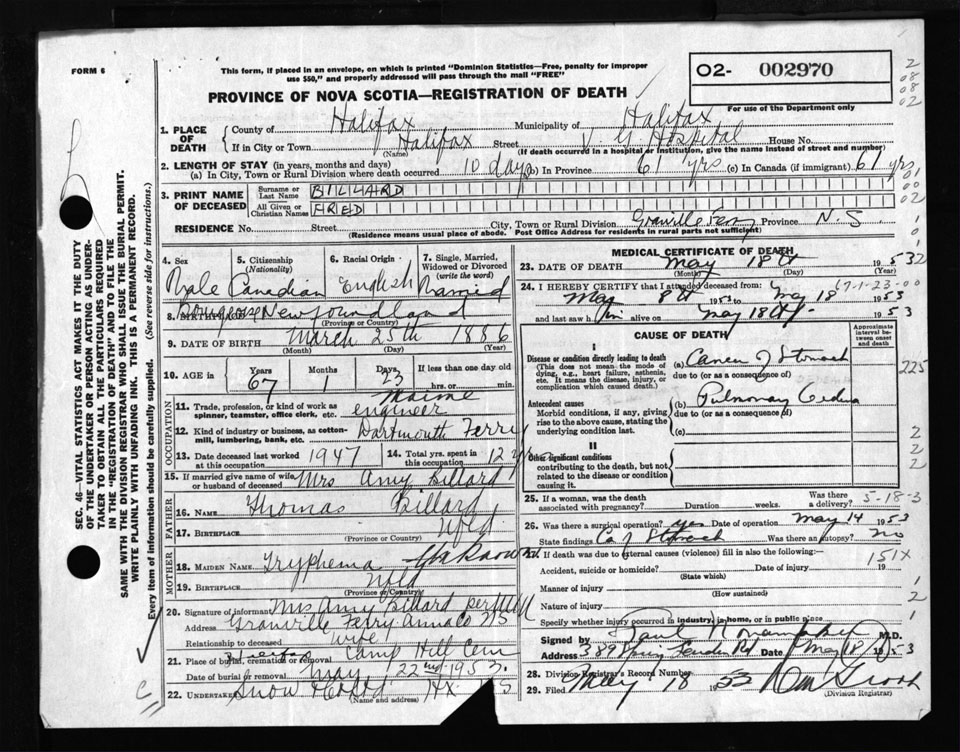 FORM 6
This form, if placed in an envelope, on which is printed "Dominion Statistics—Free, penalty for improper
use $50," and properly addressed will pass through the mail "FREE"
02- 002970
For use of the Department only
2
08
08
02
PROVINCE OF NOVA SCOTIA—REGISTRATION OF DEATH
1. PLACE OF DEATH
County of Halifax Municipality of Halifax
If in City or Town Halifax Street V. G. Hospital House No.
(Name) (If death occurred in a hospital or institution, give the name instead of street and number)
2. LENGTH OF STAY (in years, months and days)
(a) In City, Town or Rural Division where death occurred 10 days (b) In Province 61 yrs (c) In Canada (if immigrant) 61 yrs
3. PRINT NAME OF DECEASED
Surname or Last Name BILLARD
All Given or Christian Names FRED
RESIDENCE No. Street City, Town or Rural Division Granville Ferry Province N.S.
(Residence means usual place of abode. Post Office Address for residents in rural parts not sufficient)
4. Sex Male
5. Citizenship (Nationality) Canadian
6. Racial Origin English
7. Single, Married, Widowed or Divorced (write the word) Married
8. BIRTHPLACE Newfoundland
(Province or Country)
9. DATE OF BIRTH March 25th 1886
(Month) (Day) (Year)
10. AGE in Years 67 Months 1 Days 23 If less than one day old hrs. or min.
OCCUPATION
11. Trade, profession, or kind of work as spinner, teamster, office clerk, etc. Marine engineer
12. Kind of industry or business, as cotton-mill, lumbering, bank, etc. Dartmouth Ferry
13. Date deceased last worked at this occupation 1947
14. Total yrs. spent in this occupation 12 yrs
15. If married give name of wife or husband of deceased Mrs Amy Billard
FATHER
16. Name Thomas Billard
17. Birthplace Nfld
(Province or Country)
MOTHER
18. Maiden Name Tryphena
19. Birthplace Nfld
(Province or Country)
20. Signature of informant Mrs Amy Billard per
Address Granville Ferry Anna Co NS
Relationship to deceased wife
21. Place of burial, cremation or removal Camp Hill Cem
Date of burial or removal May 22nd 1953.
22. Undertaker Snow Hfx NS
(Name and address)
MEDICAL CERTIFICATE OF DEATH
23. DATE OF DEATH May 18th 1953
(Month) (Day) (Year)
24. I HEREBY CERTIFY that I attended deceased from
May 8th 1953 to May 18 1953
and last saw him alive on May 18th 1953
CAUSE OF DEATH
Approximate interval between onset and death
I
Disease or condition directly leading to death
(This does not mean the mode of dying, e.g., heart failure, asthenia, etc. It means the disease, injury, or complication which caused death.)
(a) Cancer of Stomach
due to (or as a consequence of)
Antecedent causes
Morbid conditions, if any, giving rise to the above cause, stating the underlying condition last.
(b) Pulmonary Oedema
due to (or as a consequence of)
(c)
II
Other significant conditions
contributing to the death, but not related to the disease or condition causing it.
25. If a woman, was the death associated with pregnancy? Duration weeks. Was there a delivery?
5-18-3
26. Was there a surgical operation? yes Date of operation May 14 1953
State findings Ca of Stomach Was there an autopsy? no
27. If death was due to external causes (violence) fill in also the following:—
Accident, suicide or homicide? Date of injury 19
(State which)
151X
Manner of injury
(How sustained)
Nature of injury
Specify whether injury occurred in industry, in home, or in public place
Signed by M.D.
Address 389 Spring Garden Rd Date May 18 1953
28. Division Registrar's Record Number
29. Filed May 18 1953
(Division Registrar)
SEC. 46—VITAL STATISTICS ACT MAKES IT THE DUTY
OF THE UNDERTAKER OR PERSON ACTING AS UNDER-
TAKER TO OBTAIN ALL THE PARTICULARS REQUIRED
IN THE "REGISTRATION OF DEATH" AND TO FILE THE
SAME WITH THE DIVISION REGISTRAR WHO SHALL ISSUE THE BURIAL PERMIT.
WRITE PLAINLY WITH UNFADING INK. THIS IS A PERMANENT RECORD.
Every item of information should be carefully supplied. (See reverse side for instructions.)